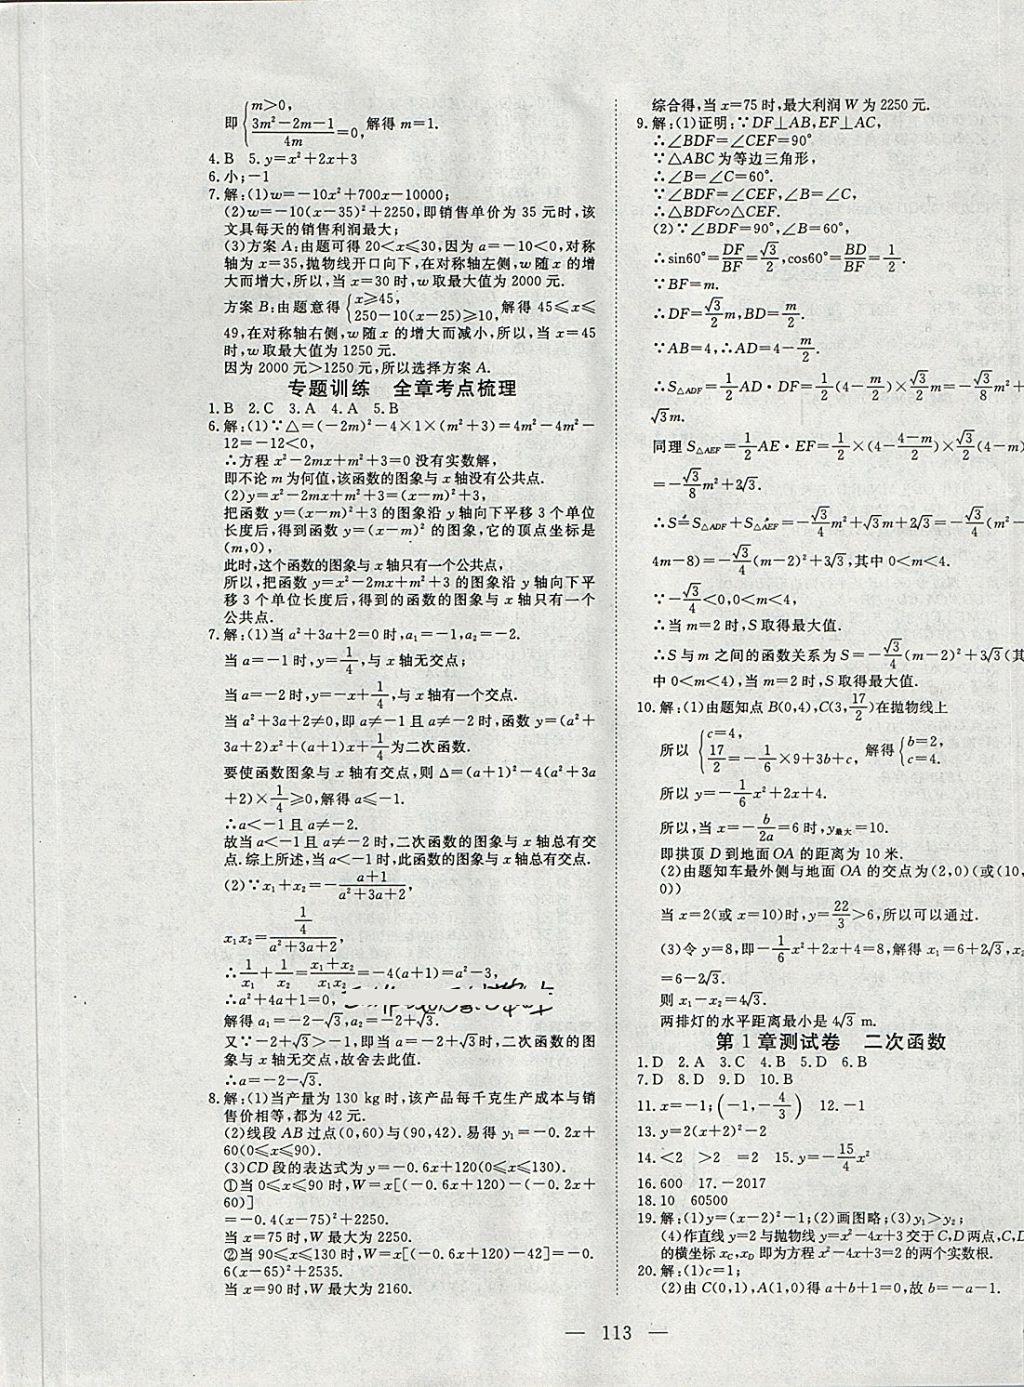 即{m>0,
(3m²-2m-1)/4m=0, 解得 m=1.
4.B 5.y=x²+2x+3
6.小;-1
7.解:(1)w=-10x²+700x-10000;
(2)w=-10(x-35)²+2250,即销售单价为 35 元时,该
文具每天的销售利润最大;
(3)方案 A:由题可得 20<x≤30,因为 a=-10<0,对称
轴为 x=35,抛物线开口向下,在对称轴左侧,w 随 x 的增
大而增大,所以,当 x=30 时,w 取最大值为 2000 元.
方案 B:由题意得{x≥45, 250-10(x-25)≥10, 解得 45≤x≤
49,在对称轴右侧,w 随 x 的增大而减小,所以,当 x=45
时,w 取最大值为 1250 元.
因为 2000 元>1250 元,所以选择方案 A.
专题训练 全章考点梳理
1.B 2.C 3.A 4.A 5.B
6.解:(1)∵△=(-2m)²-4×1×(m²+3)=4m²-4m²-
12=-12<0,
∴方程 x²-2mx+m²+3=0 没有实数解,
即不论 m 为何值,该函数的图象与 x 轴没有公共点.
(2)y=x²-2mx+m²+3=(x-m)²+3,
把函数 y=(x-m)²+3 的图象沿 y 轴向下平移 3 个单位
长度后,得到函数 y=(x-m)² 的图象,它的顶点坐标是
(m,0),
此时,这个函数的图象与 x 轴只有一个公共点,
所以,把函数 y=x²-2mx+m²+3 的图象沿 y 轴向下平
移 3 个单位长度后,得到的函数的图象与 x 轴只有一个
公共点.
7.解:(1)当 a²+3a+2=0 时,a₁=-1,a₂=-2.
当 a=-1 时,y=1/4,与 x 轴无交点;
当 a=-2 时,y=-x+1/4,与 x 轴有一个交点.
当 a²+3a+2≠0,即 a≠-1 且 a≠-2 时,函数 y=(a²+
3a+2)x²+(a+1)x+1/4为二次函数.
要使函数图象与 x 轴有交点,则 Δ=(a+1)²-4(a²+3a
+2)×1/4≥0,解得 a≤-1.
∴a<-1 且 a≠-2.
故当 a<-1 且 a≠-2 时,二次函数的图象与 x 轴总有交
点.综上所述,当 a<-1 时,此函数的图象与 x 轴总有交点.
(2)∵x₁+x₂=-(a+1)/(a²+3a+2),
x₁x₂=(1/4)/(a²+3a+2),
∴1/x₁+1/x₂=(x₁+x₂)/(x₁x₂)=-4(a+1)=a²-3,
∴a²+4a+1=0,
解得 a₁=-2-√3,a₂=-2+√3.
又∵-2+√3>-1,即当 a=-2+√3时,二次函数的图
象与 x 轴无交点,故舍去此值.
∴a=-2-√3.
8.解:(1)当产量为 130 kg 时,该产品每千克生产成本与销
售价相等,都为 42 元.
(2)线段 AB 过点(0,60)与(90,42).易得 y₁=-0.2x+
60(0≤x≤90).
(3)CD 段的表达式为 y=-0.6x+120(0≤x≤130).
①当 0≤x≤90 时,W=x[(-0.6x+120)-(-0.2x+
60)]
=-0.4(x-75)²+2250.
当 x=75 时,W 最大为 2250.
②当 90≤x≤130 时,W=x[(-0.6x+120)-42]=-0.
6(x-65)²+2535.
当 x=90 时,W 最大为 2160.
综合得,当 x=75 时,最大利润 W 为 2250 元.
9.解:(1)证明:∵DF⊥AB,EF⊥AC,
∴∠BDF=∠CEF=90°
∵△ABC 为等边三角形,
∴∠B=∠C=60°.
∵∠BDF=∠CEF,∠B=∠C,
∴△BDF∽△CEF.
(2)∵∠BDF=90°,∠B=60°,
∴sin60°=DF/BF=√3/2,cos60°=BD/BF=1/2.
∵BF=m.
∴DF=√3/2 m,BD=m/2.
∵AB=4,∴AD=4-m/2.
∴S△ADF=1/2 AD·DF=1/2(4-m/2)×√3/2 m=-√3/8 m²+
√3m.
同理 S△AEF=1/2 AE·EF=1/2×(4-(4-m)/2)×√3/2(4-m)
=-√3/8 m²+2√3.
∴S=S△ADF+S△AEF=-√3/4 m²+√3m+2√3=-√3/4(m²-
4m-8)=-√3/4(m-2)²+3√3,其中 0<m<4.
∵-√3/4<0,0<m<4,
∴当 m=2 时,S 取得最大值.
∴S 与 m 之间的函数关系为 S=-√3/4(m-2)²+3√3(其
中 0<m<4),当 m=2 时,S 取得最大值.
10.解:(1)由题知点 B(0,4),C(3,17/2)在抛物线上
所以{c=4, 17/2=-1/6×9+3b+c, 解得{b=2, c=4.
所以 y=-1/6x²+2x+4.
所以,当 x=-b/2a=6 时,y最大=10.
即拱顶 D 到地面 OA 的距离为 10 米.
(2)由题知车最外侧与地面 OA 的交点为(2,0)(或(10,
0))
当 x=2(或 x=10)时,y=22/3>6,所以可以通过.
(3)令 y=8,即-1/6x²+2x+4=8,解得 x₁=6+2√3,x₂
=6-2√3.
则 x₁-x₂=4√3.
两排灯的水平距离最小是 4√3 m.
第 1 章测试卷 二次函数
1.D 2.A 3.C 4.B 5.D 6.B
7.D 8.D 9.D 10.B
11.x=-1;(-1,-4/3) 12.-1
13.y=2(x+2)²-2
14.<2 >2 =2 15.y=-15/4x²
16.600 17.-2017
18.10 60500
19.解:(1)y=(x-2)²-1;(2)画图略;(3)y₁>y₂;
(4)作直线 y=2 与抛物线 y=x²-4x+3 交于 C,D 两点,C,D
的横坐标 xC,xD 即为方程 x²-4x+3=2 的两个实数根.
20.解:(1)c=1;
(2)由 C(0,1),A(1,0)得 a+b+1=0,故 b=-a-1.
— 113 —